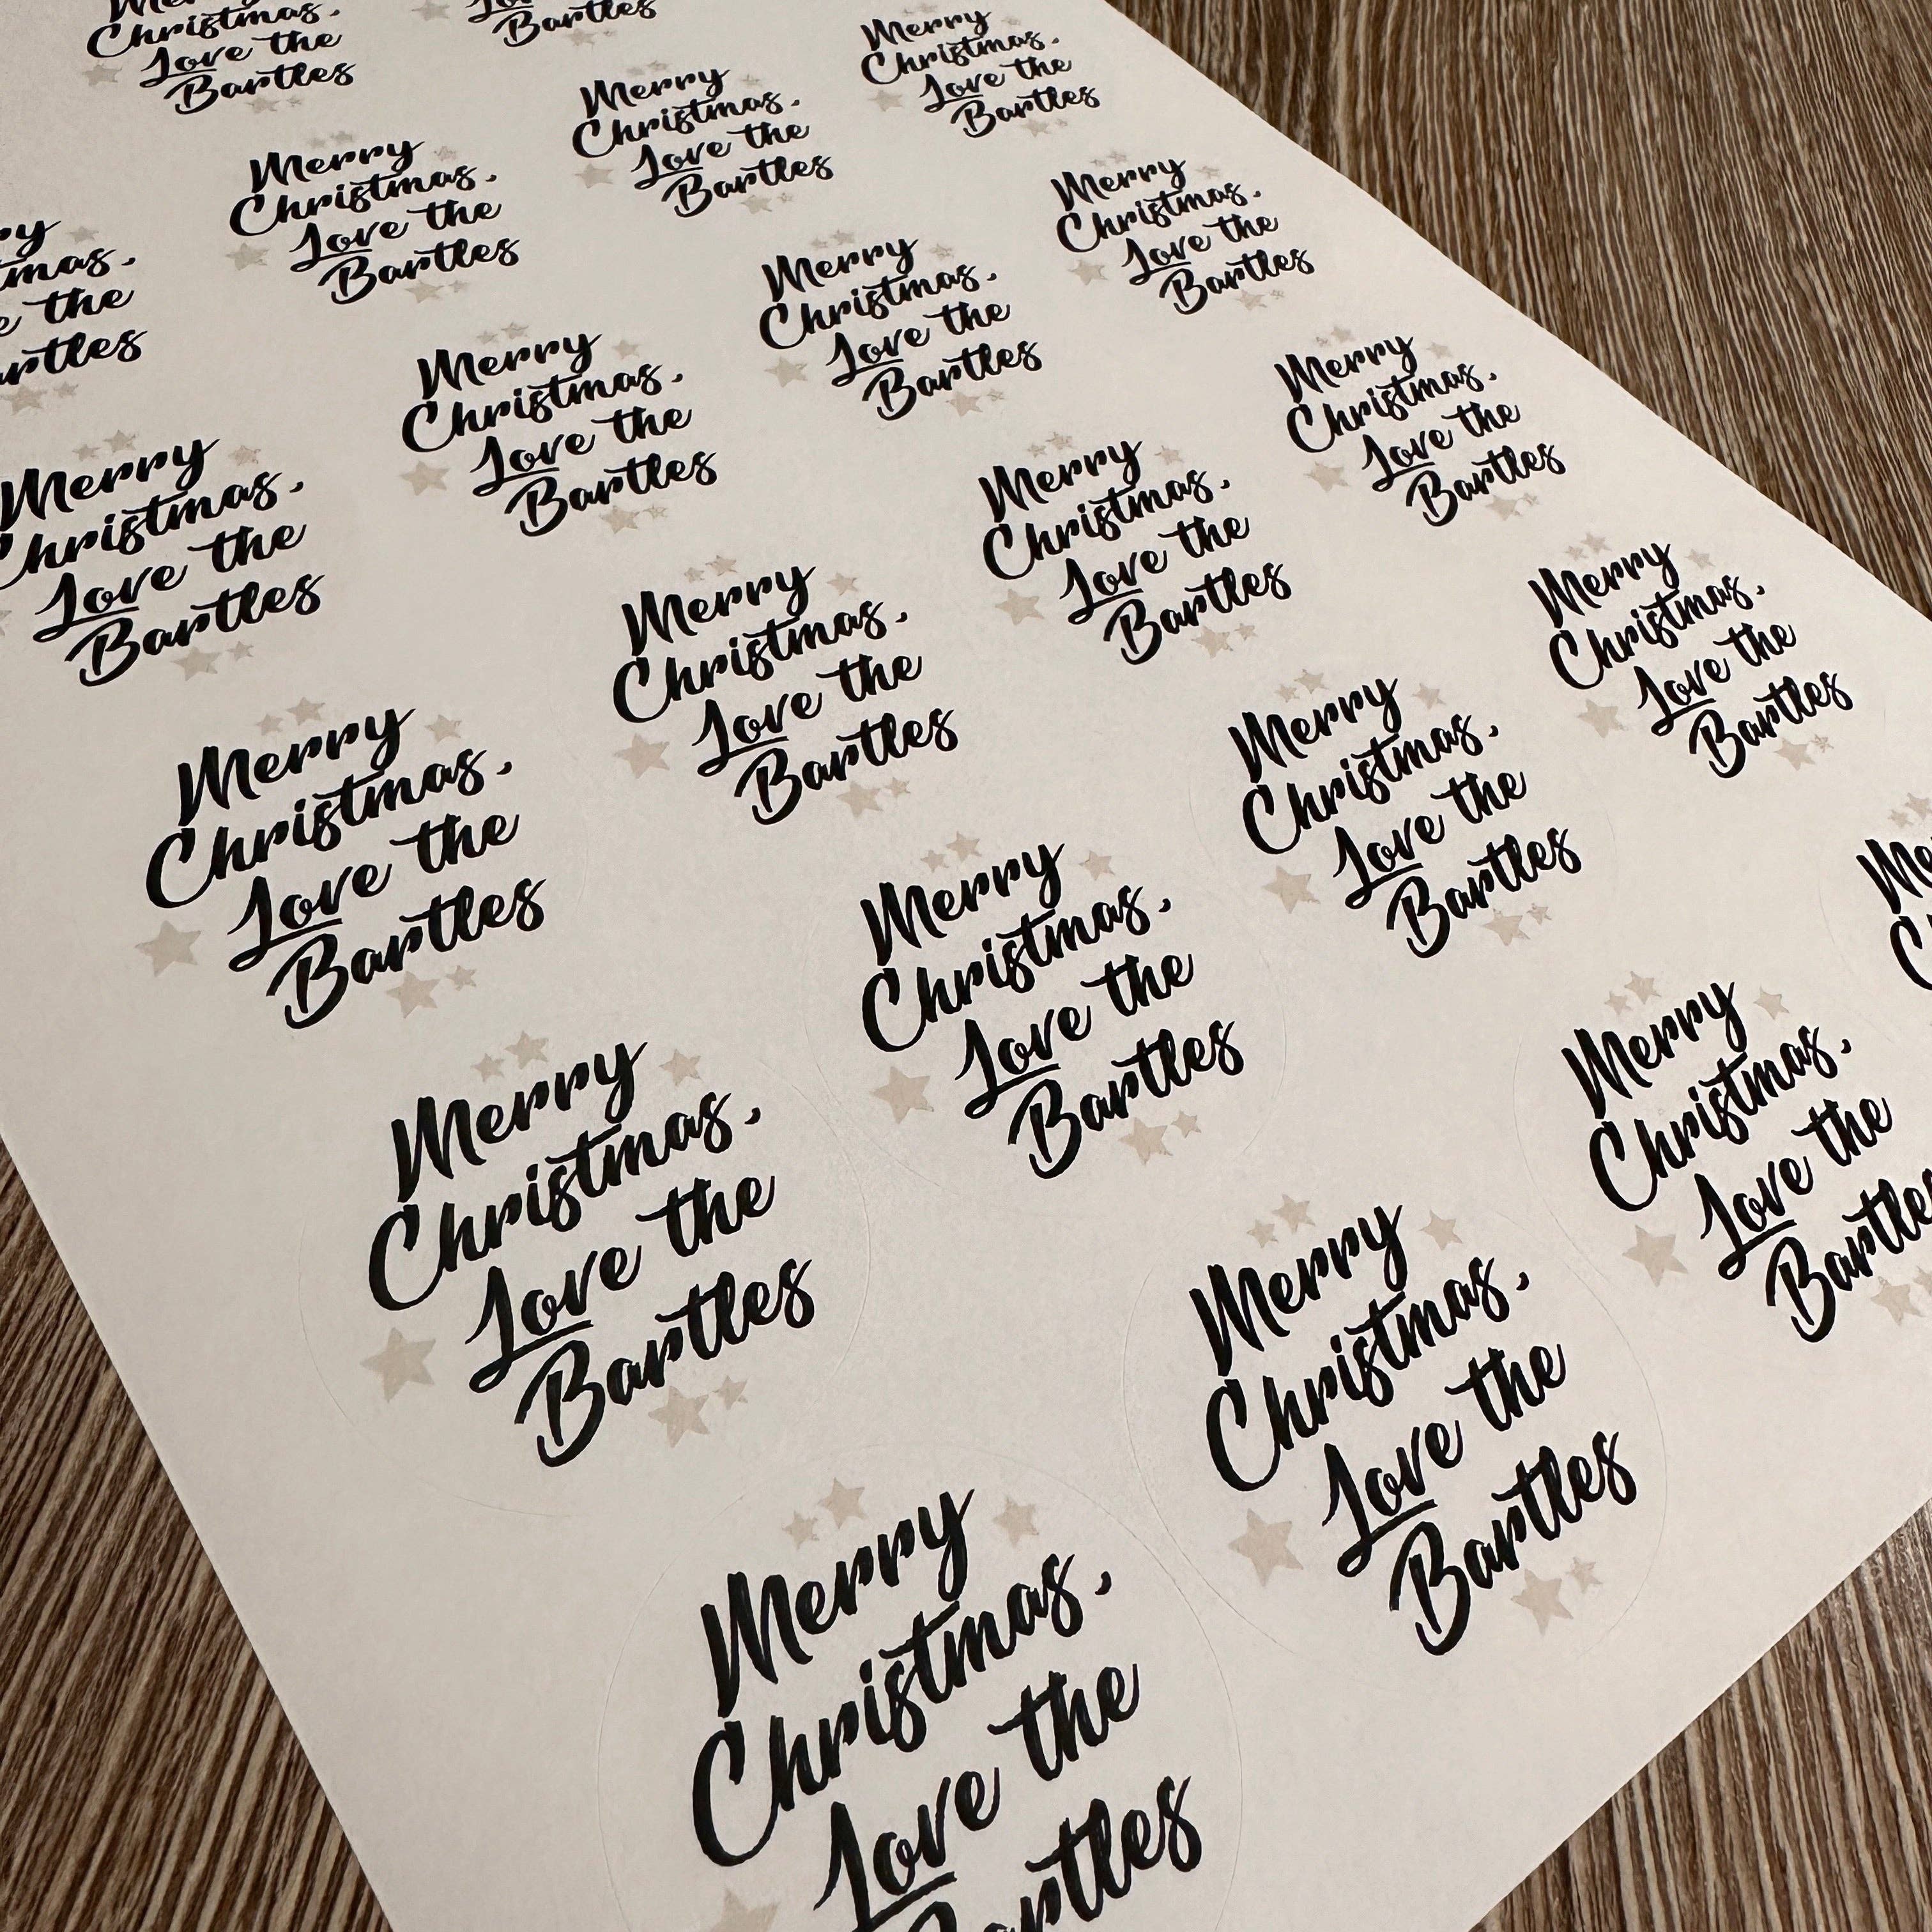 Christmas,
Love the
Bartles
Bartles
Merry
Christmas,
Love the
Bartles
Merry
Christmas,
Love the
Bartles
Merry
Christmas,
Love the
Bartles
Merry
Christmas,
Love the
Bartles
ry
mas,
e the
artles
Merry
Christmas,
Love the
Bartles
Merry
Christmas,
Love the
Bartles
Merry
Christmas,
Love the
Bartles
Merry
Christmas,
Love the
Bartles
Merry
Christmas,
Love the
Bartles
Merry
Christmas,
Love the
Bartles
Merry
Christmas,
Love the
Bartles
Merry
Christmas,
Love the
Bartles
Merry
Christmas,
Love the
Bartles
Merry
Christmas,
Love the
Bartles
Me
C
Merry
Christmas,
Love the
Bartles
Merry
Christmas,
Love the
Bartle
Merry
Christmas,
Love the
Bartles
Merry
Christmas,
Love the
Bartles